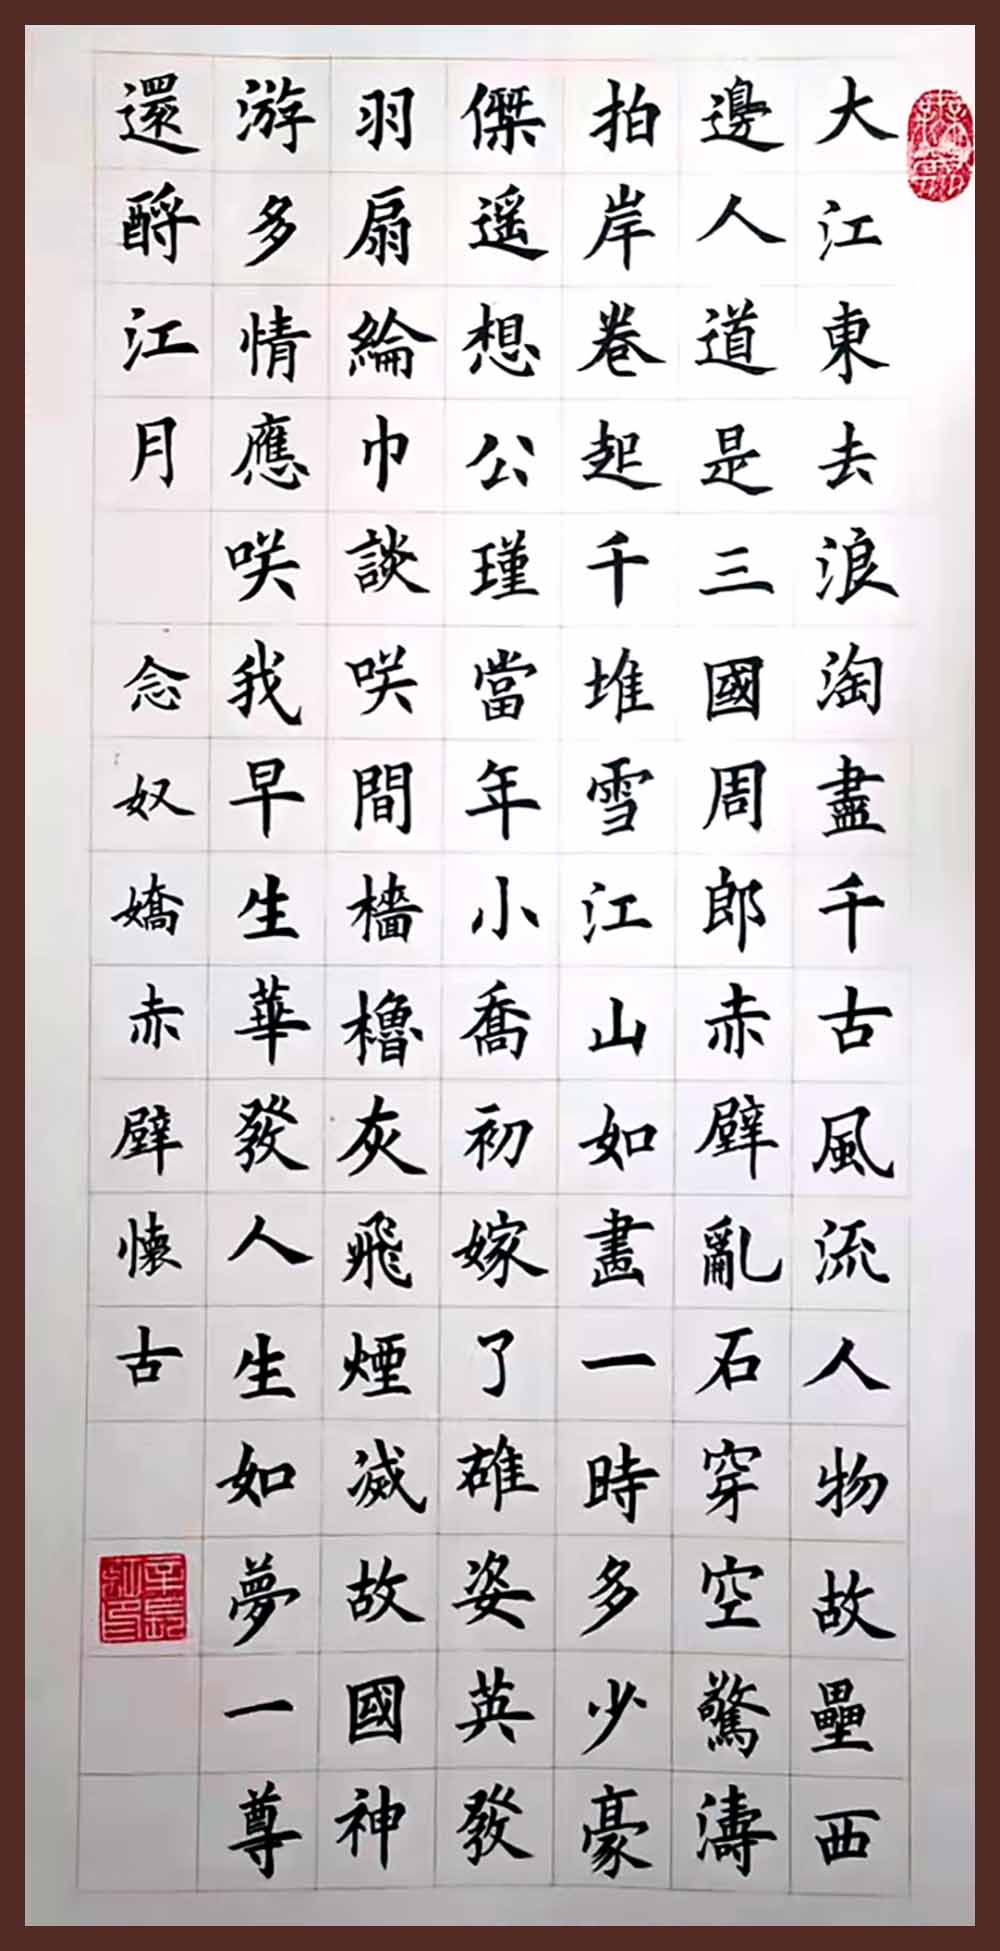 大江東去浪淘盡千古風流人物故壘西
邊人道是三國周郎赤壁亂石穿空驚濤
拍岸卷起千堆雪江山如畫一時多少豪
傑遥想公瑾當年小喬初嫁了雄姿英發
羽扇綸巾談咲間檣櫓灰飛煙滅故國神
游多情應咲我早生華發人生如夢一尊
還酹江月 念奴嬌赤壁懷古